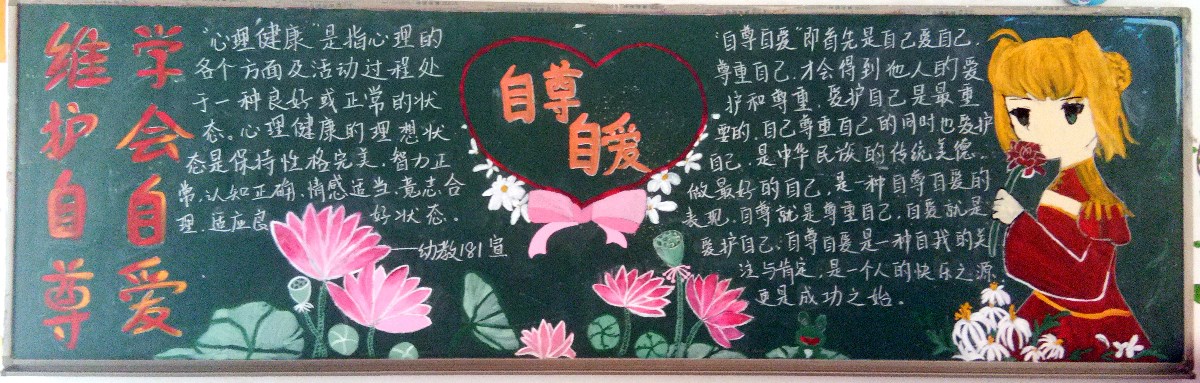 学会自爱
维护自尊
“心理健康”是指心理的
各个方面及活动过程处
于一种良好或正常的状
态。心理健康的理想状
态是保持性格完美、智力正
常、认知正确、情感适当、意志合
理、适应良好状态。
——幼教181宣
自尊
自爱
“自尊自爱”即首先是自己爱自己，
尊重自己，才会得到他人的爱
护和尊重，爱护自己是最重
要的，自己尊重自己的同时也爱护
自己，是中华民族的传统美德。
做最好的自己，是一种自尊自爱的
表现，自尊就是尊重自己，自爱就是
爱护自己，自尊自爱是一种自我的关
注与肯定，是一个人的快乐之源
更是成功之始。